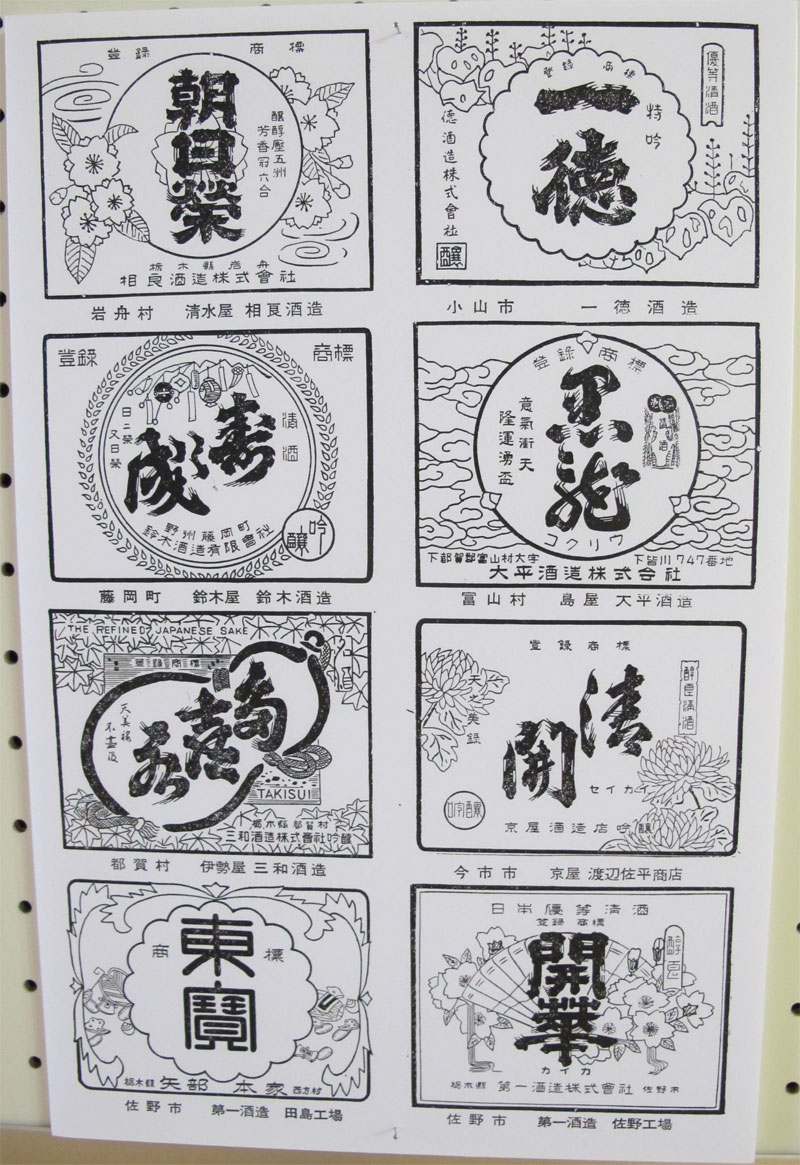 登録 商標
朝日榮
醸醇壓五洲
芳香冠六合
栃木縣岩舟
相良酒造株式會社
岩舟村 清水屋 相良酒造
登録 商標
優等清酒
一徳
特吟
一徳酒造株式會社
醸
小山市 一徳酒造
登録 商標
清酒
寿
成
日二榮
又日榮
野州藤岡町
鈴木酒造有限會社
吟醸
藤岡町 鈴木屋 鈴木酒造
登録商標
黒龍
意氣衝天
隆運湧盃
コクリウ
下都賀郡富山村大字 下皆川747番地
大平酒造株式会社
富山村 島屋 大平酒造
THE REFINED JAPANESE SAKE
登録商標
天美禄
TAKISUI
栃木縣都賀村
三和酒造株式會社吟醸
都賀村 伊勢屋 三和酒造
登録商標
天之美録
清開
セイカイ
京屋酒造店吟醸
今市市 京屋 渡辺佐平商店
商標
東寶
栃木縣 矢部本家 西方村
佐野市 第一酒造 田島工場
日本優等清酒
登録商標
開華
カイカ
栃木縣 第一酒造株式會社 佐野市
佐野市 第一酒造 佐野工場